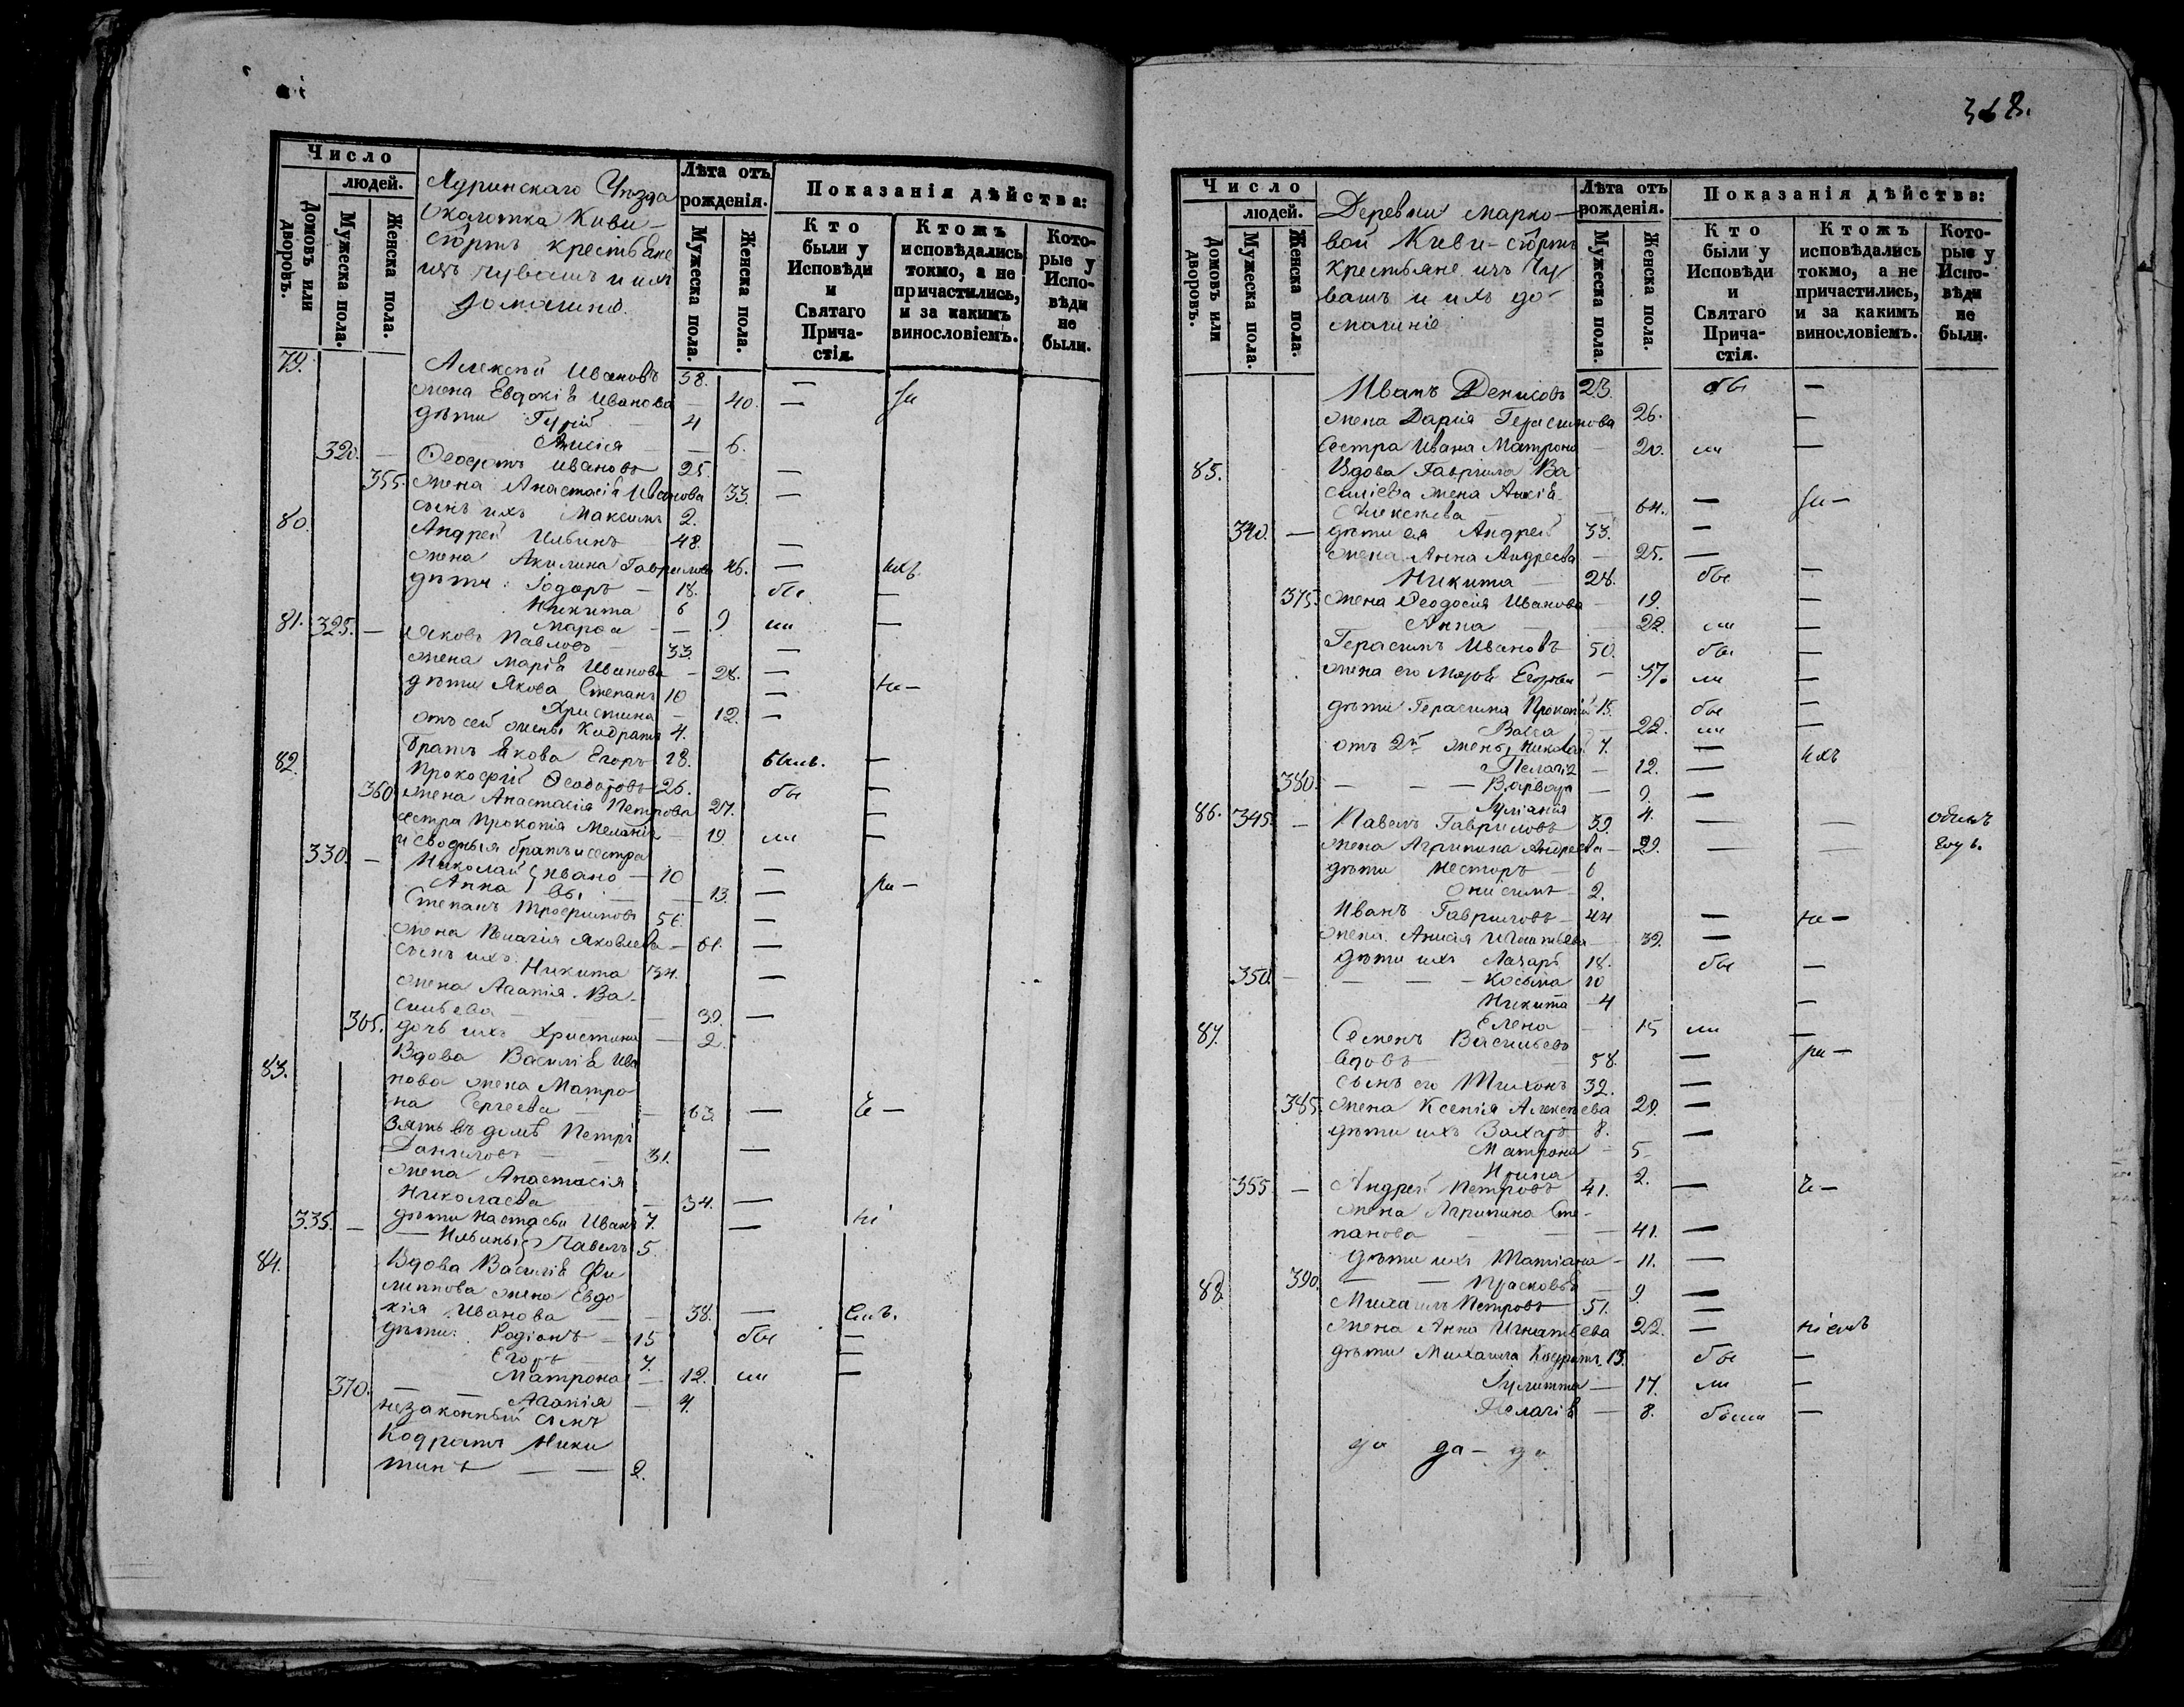 Число
людей.
Домовъ или дворовъ.
Мужеска пола.
Женска пола.
Ядринскаго Уѣзда
Околотка Киви-
сюртъ крестьяне
изъ чувашъ и ихъ
домашніе.
Лѣта отъ рожденія.
Мужеска пола.
Женска пола.
Показанія дѣйства:
Кто были у Исповѣди и Святаго Причастія.
Ктожъ исповѣдались токмо, а не причастились, и за какимъ винословіемъ.
Которые у Исповѣди не были.
79. Алексѣй Ивановъ 58. —
жена Евдокія Иванова — 40. —
дѣти Гурій — 4
Анисія — — 6.
320. — Ѳеодотъ Ивановъ 25. —
355. жена Анастасія Иванова 33. —
сынъ ихъ Максимъ 2.
80. Андрей Ильинъ 48. —
жена Акилина Гаврилова 46. — ихъ
дѣти: Ѳодоръ — 18. бы —
Никита 6
Марѳа — — 9 ли —
81. 325. — Яковъ Павловъ — 33. —
жена Марія Иванова — 28. —
дѣти Якова Степанъ 10 — не —
Христина — 12. —
отъ сей жены Кодратъ 4.
братъ Якова Егоръ 18. былъ. —
82. Прокофій Ѳеодотовъ 26. бы —
360 жена Анастасія Петрова 27. —
сестра Прокопія Меланія — 19. ли —
и сводныя братъ и сестра
330. — Николай } Ивано — 10 —
Анна } вы — — 13. — ра —
Степанъ Трофимовъ 56 —
жена Пелагія Яковлева — 61. —
сынъ ихъ Никита 34. —
жена Агапія Ва-
сильева — 39. —
365. дочь ихъ Христина — 2.
83. Вдова Василія Ива
нова жена Матро
на Сергеева — — 63. — че —
Зять въ домѣ Петръ
Даниловъ — — 31. —
жена Анастасія
Николаева — 34. —
335. — дѣти Настасьи Иванъ 7. — ні
— Ильины } Павелъ 5.
84. Вдова Василія Фи
липпова жена Евдо
кія Иванова — — 38. — емъ.
дѣти: Родіонъ — 15 бы —
Егоръ — 7. —
Матрона — 12. ли —
370. — — Агапія — 4.
незаконный сынъ
Кодратъ Ники
тинъ — — 2.
368.
Число
людей.
Домовъ или дворовъ.
Мужеска пола.
Женска пола.
Деревни Марко-
вой Киви-сюртъ
крестьяне изъ Чу
вашъ и ихъ до-
машніе
Лѣта отъ рожденія.
Мужеска пола.
Женска пола.
Показанія дѣйства:
Кто были у Исповѣди и Святаго Причастія.
Ктожъ исповѣдались токмо, а не причастились, и за какимъ винословіемъ.
Которые у Исповѣди не были.
Иванъ Денисовъ 23. бы —
жена Дарія Герасимова 26. —
Сестра Ивана Матрона — 20. ли —
85. Вдова Гавріила Ва
силіева жена
Алексѣева — 64. —
340. — дѣти ея Андрей 33. —
жена Анна Андреева — 25. —
Никита — 28. бы —
375. жена Ѳеодосія Иванова — 19. —
Анна — 22. ли —
Герасимъ Ивановъ 50. бы —
жена его Марѳа Егорова — 37. ли —
дѣти Герасима Прокопій 15. бы —
Васса — 22. ли —
отъ 2й жены Николай 7. — ихъ
Пелагія — 12. —
380. — — — Варвара — 9. —
Іуліанія 4.
86. 345. — Павелъ Гавриловъ 39. — — однимъ
жена Агрипина Андреева — 29. — — году.
дѣти Несторъ — 6
Онисимъ — 2.
Иванъ Гавриловъ — 44 — не —
жена Анисія Игнатьева — 39. —
дѣти ихъ Лазарь 18. бы —
350. — — — — Косьма 10
Никита — 4 —
Елена — 15 ли —
87. Семенъ Васильевъ
вдовъ — 58. — ра —
сынъ его Тихонъ 32. —
385. жена Ксенія Алексѣева 29. —
дѣти ихъ Захаръ 8. —
Матрона — 5
Ирина 2.
355 — Андрей Петровъ 41. — че —
жена Агрипина Сте-
панова — — — 41. —
дѣти ихъ Татіана — 11. —
390. — — Прасковья 9 —
88. Михаилъ Петровъ — 51. —
жена Анна Игнатьева 22. — ніемъ
дѣти Михаила Кодратъ 13. бы —
Іулитта — 17. ли —
Пелагія — 8. были —
да да — да